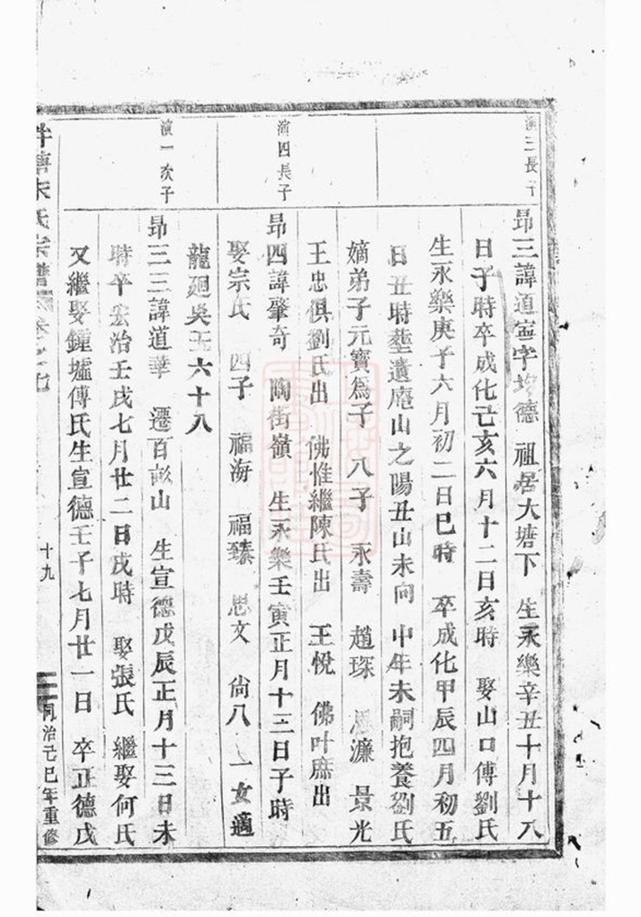 演三長子
昻三諱道寧字 德 祖居大塘下 生永樂辛丑十月十八
日子時卒成化己亥六月十二日亥時 娶山口傅劉氏
生永樂庚子六月初二日巳時 卒成化甲辰四月初五
日丑時塟遺庵山之陽丑山未向 中年未嗣抱養劉氏
嫡弟子元寳爲子 八子 永壽 趙琛 濂 景光
王忠俱劉氏出 佛惟繼陳氏出 王悅 佛叶庶出
演四長子
昻四諱肇奇 陶街嶺 生永樂壬寅正月十三日子時
娶宗氏 四子 福海 福臻 思文 尙八 一女適
龍廻吳玉六十八
演一次子
昻三三諱道華 遷百彭山 生宣德戊辰正月十三日未
時卒宏治壬戌七月廿二日戌時 娶張氏 繼娶何氏
又繼娶鐘墟傅氏生宣德壬子七月廿一日 卒正德戊
塘宋氏宗譜 卷之七
十九
同治己巳年重修